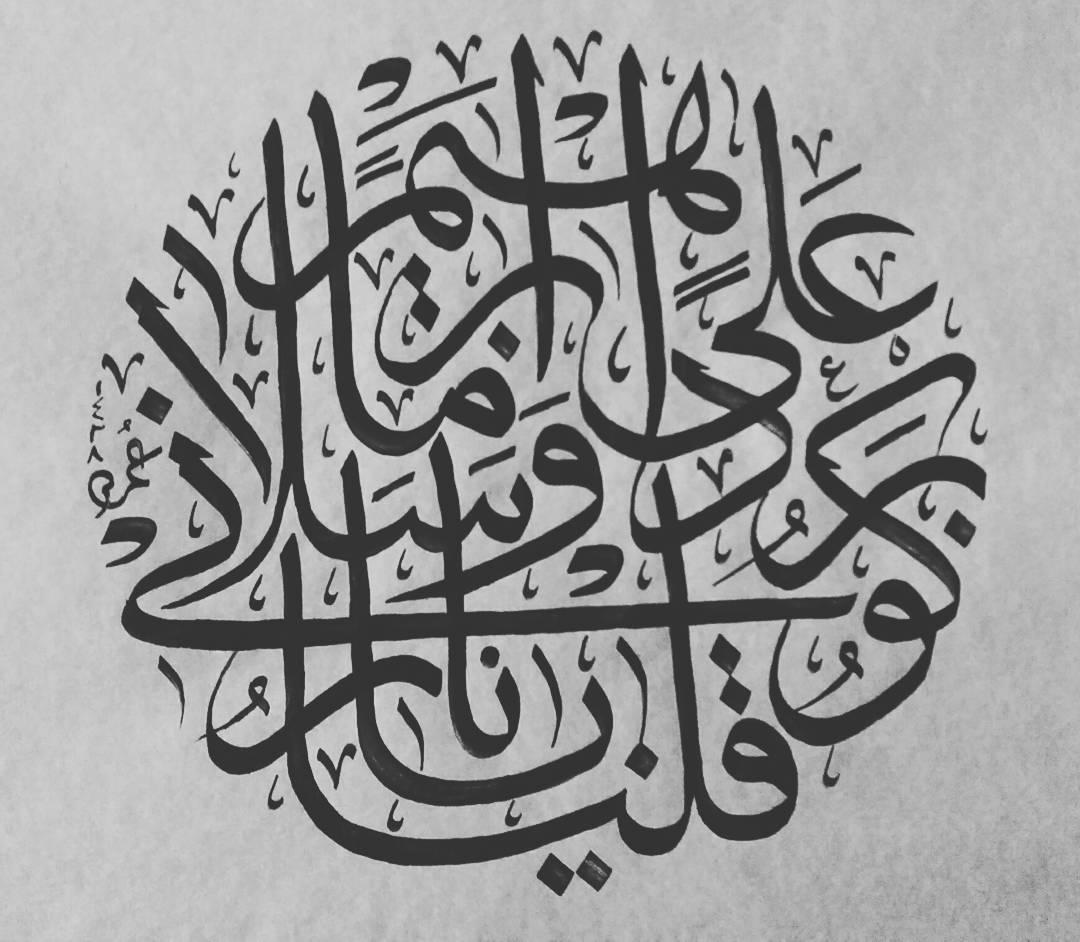 قلنا يا نار كوني بردا وسلاما على ابراهيم